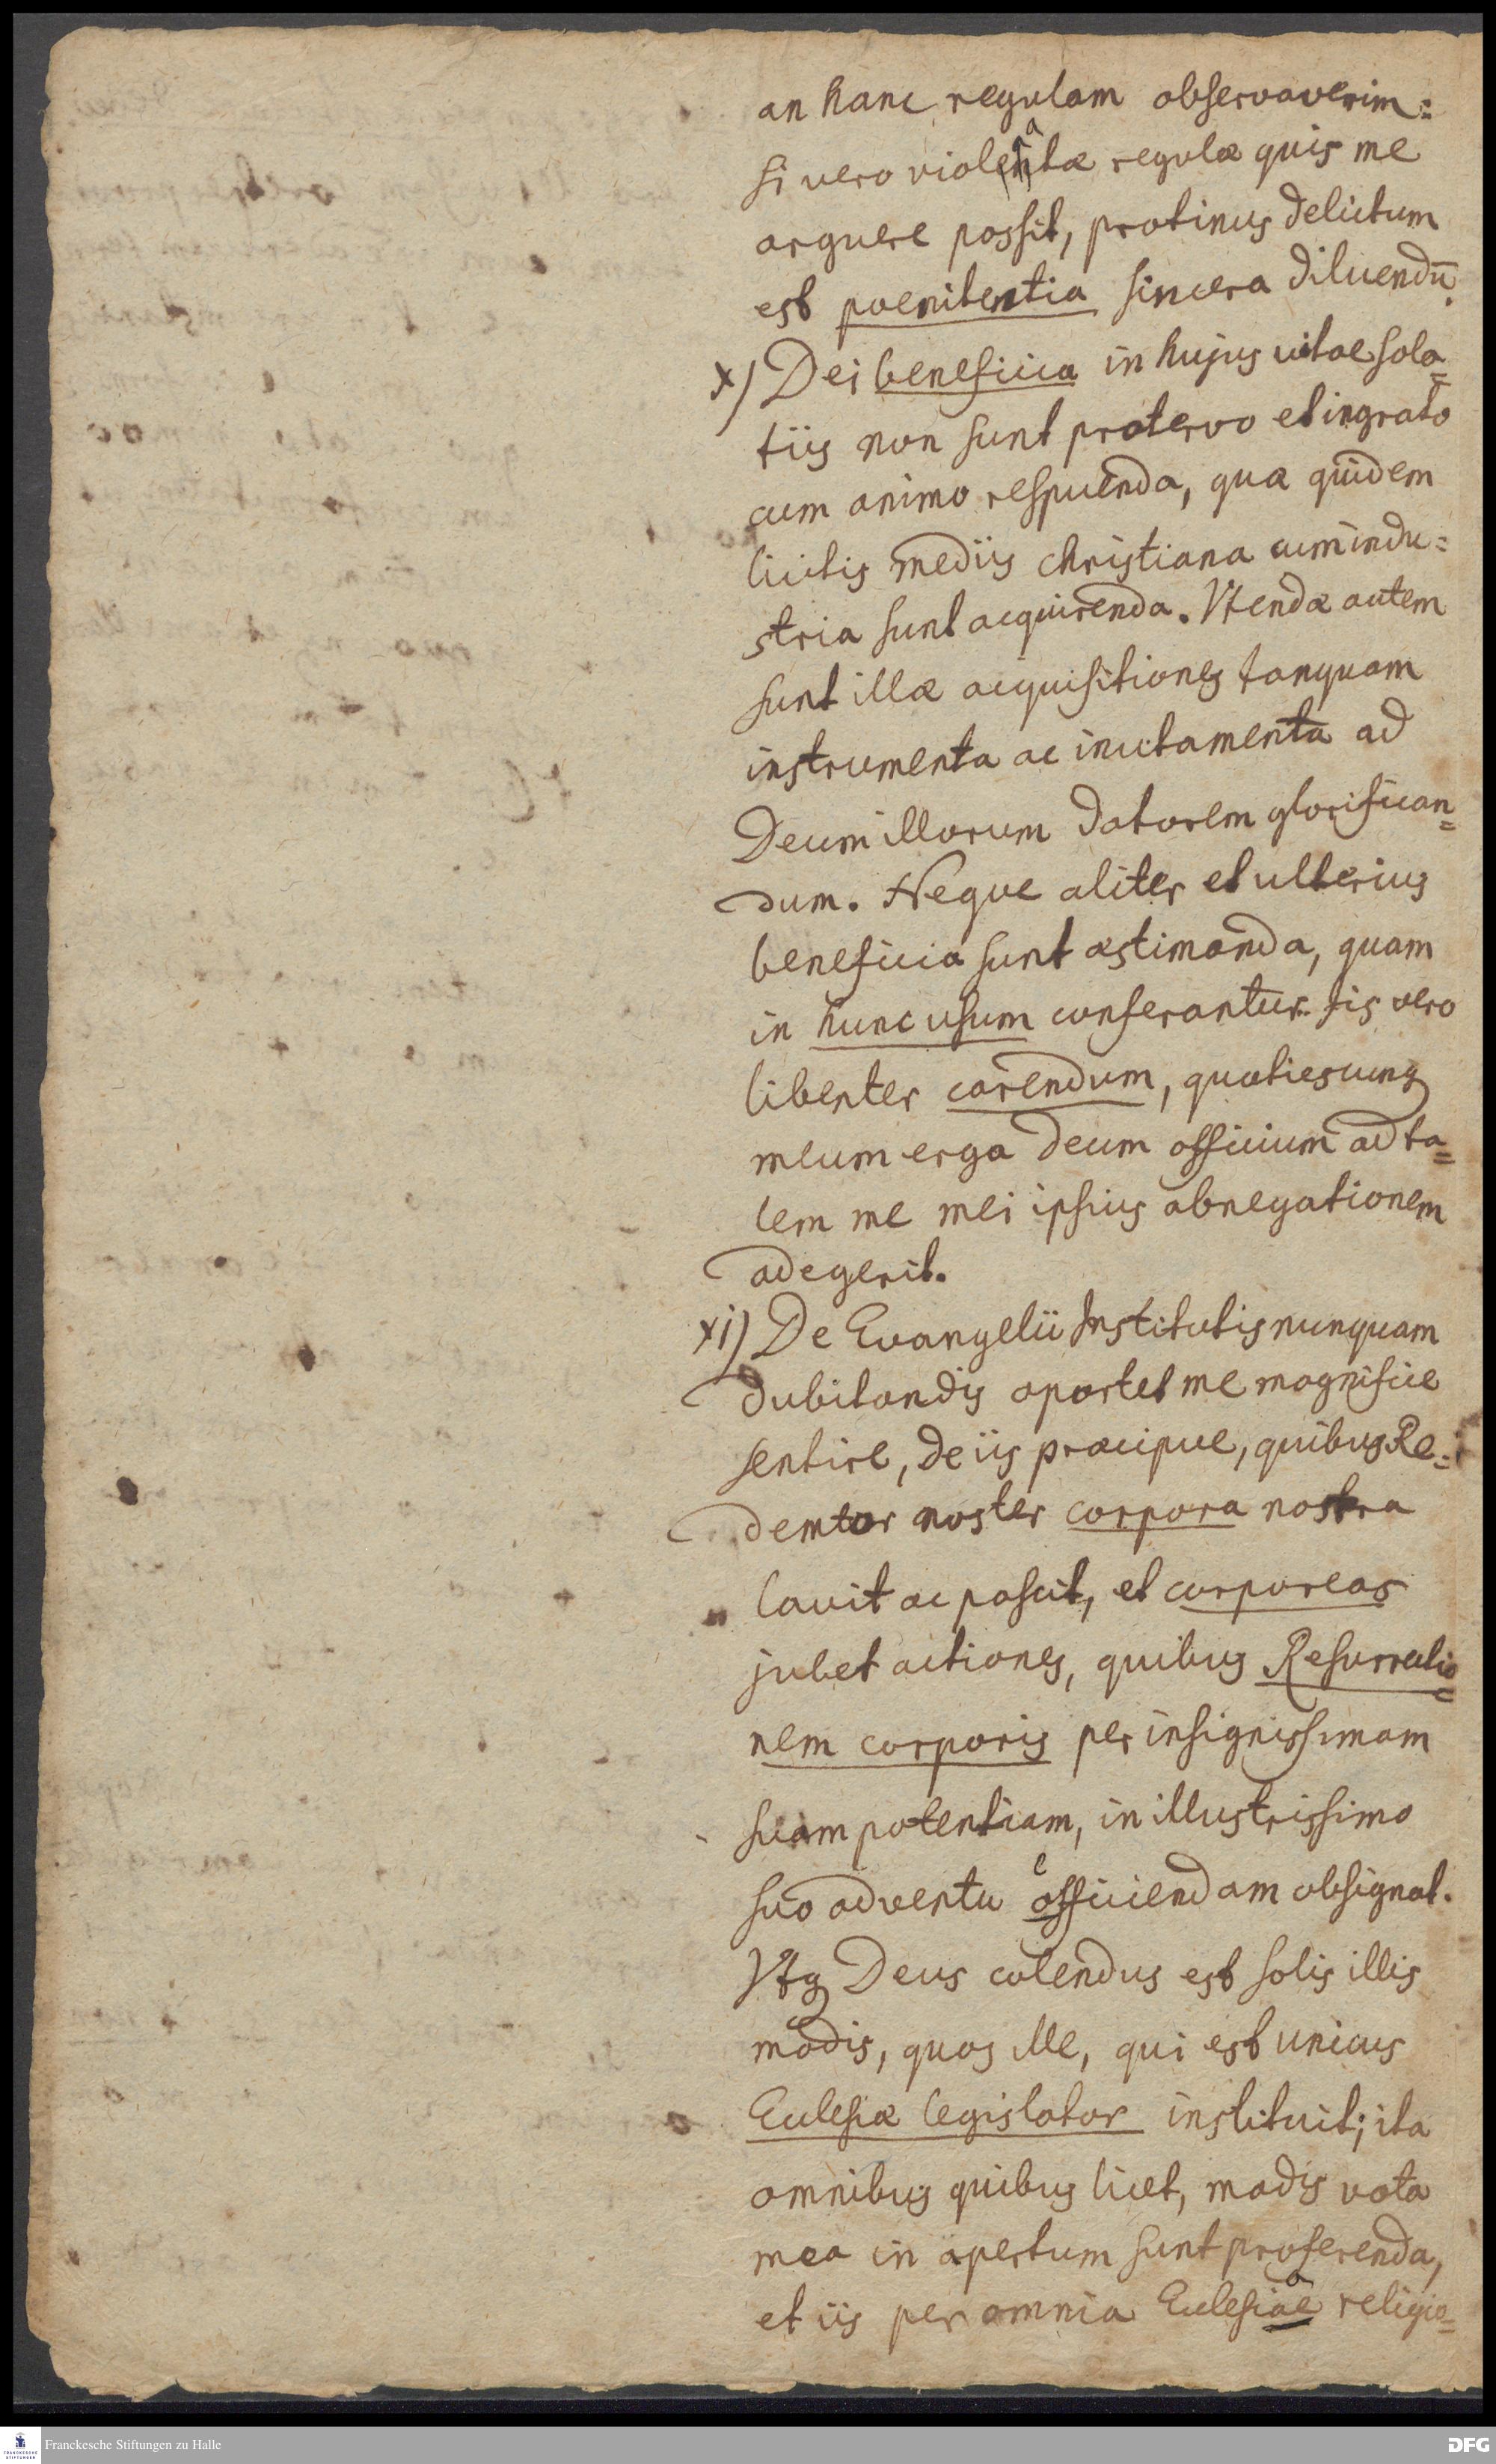 an hanc regulam observaverim:
si vero violatæ regulæ quis me
arguere possit, protinus delictum
est poenitentia sincera diluendū.
x) Dei beneficia in hujus vitae sola=
tiis non sunt protervo et ingrato
cum animo respuenda, quæ quidem
licitis mediis christiana cum indu=
stria sunt acquirenda. Vtendæ autem
sunt illæ acquisitiones tanquam
instrumenta ac incitamenta ad
Deum illorum datorem glorifican=
dum. Neque aliter et ulterius
beneficia sunt æstimanda, quam
in hunc usum conferantur. Iis vero
libenter carendum, quotiescunq
meum erga Deum officium ad ta=
lem me mei ipsius abnegationem
adegerit.
xi) De Evangelii Institutis nunquam
dubitandis oportet me magnifice
sentire, de iis præcipue, quibus Re=
demtor noster corpora nostra
lavit ac pascit, et corporeas
jubet actiones, quibus Resurrectio=
nem corporis per insignissimam
suam potentiam, in illustrissimo
suo adventu efficiendam obsignat.
Vtq Deus colendus est solis illis
modis, quos ille, qui est unicus
Ecclesiæ legislator instituit; ita
omnibus quibus licet, modis vota
mea in apertum sunt proferenda,
et iis per omnia Ecclesia religio=
Franckesche Stiftungen zu Halle
DFG